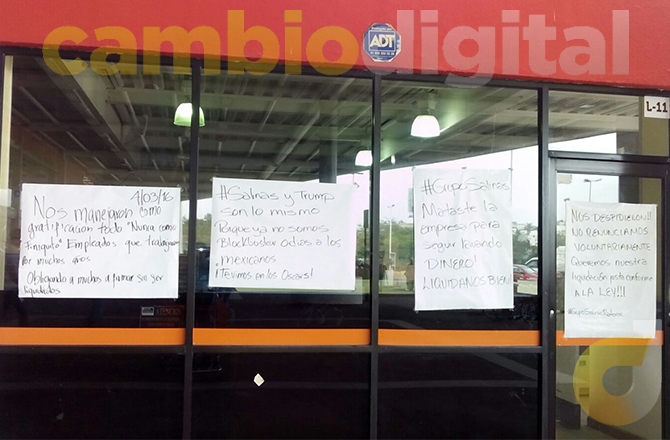 cambiodigital
ADT
L-11
4/03/16
Nos manejaron como
gratificación todo "Nunca como
Finiquito" Empleados que trabajaron
por muchos años.
Obligando a muchos a firmar sin ser
liquidados
#Salinas y Trump
son lo mismo
Porque ya no somos
Blockbuster odias a los
mexicanos
¡Te vimos en los Oscars!
#GrupoSalinas
Mataste la
empresa para
seguir lavando
DINERO!
LIQUIDANOS BIEN!
NOS DESPIDIERON!!
NO RENUNCIAMOS
VOLUNTARIAMENTE
Queremos nuestra
liquidación justa conforme
A LA LEY!!!